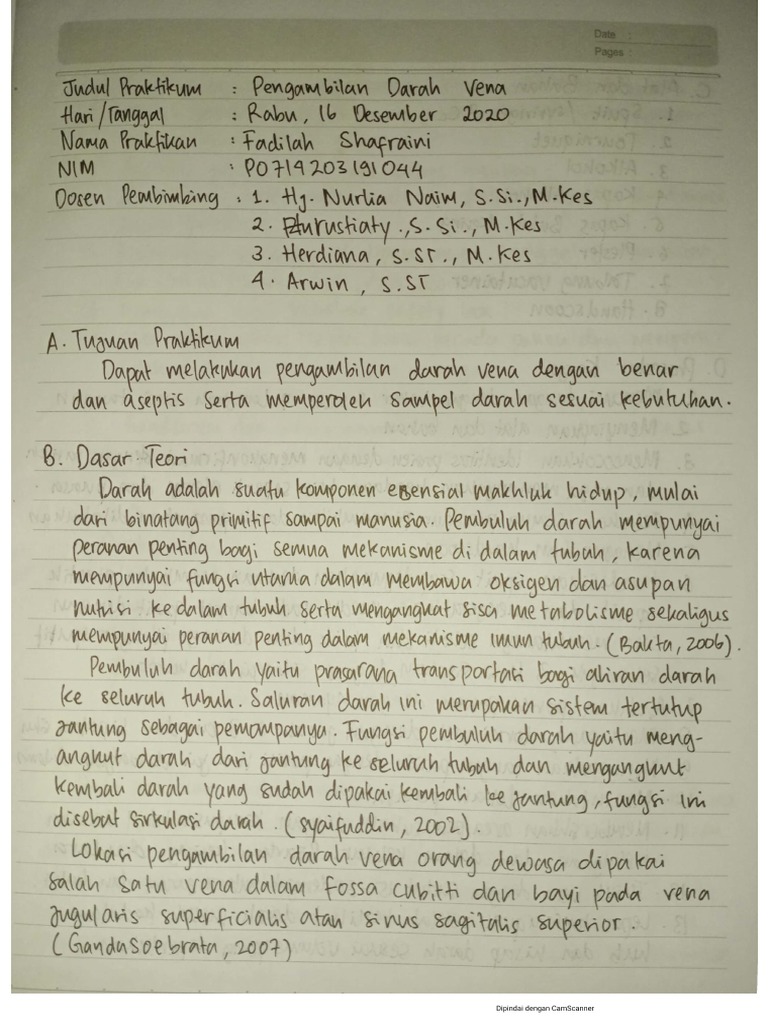 Date :
Pages :
Judul Praktikum : Pengambilan Darah Vena
Hari/Tanggal : Rabu, 16 Desember 2020
Nama Praktikan : Fadilah Shafraini
NIM : PO714203191044
Dosen Pembimbing : 1. Hj. Nurlia Naim, S.Si., M.Kes
2. Zurustiaty., S.Si., M.Kes
3. Herdiana, S.ST., M.Kes
4. Arwin, S.ST
A. Tujuan Praktikum
Dapat melakukan pengambilan darah vena dengan benar
dan aseptis serta memperoleh sampel darah sesuai kebutuhan.
B. Dasar Teori
Darah adalah suatu komponen esensial makhluk hidup, mulai
dari binatang primitif sampai manusia. Pembuluh darah mempunyai
peranan penting bagi semua mekanisme di dalam tubuh, karena
mempunyai fungsi utama dalam membawa oksigen dan asupan
nutrisi kedalam tubuh serta mengangkut sisa metabolisme sekaligus
mempunyai peranan penting dalam mekanisme imun tubuh. (Bakta, 2006).
Pembuluh darah yaitu prasarana transportasi bagi aliran darah
ke seluruh tubuh. Saluran darah ini merupakan sistem tertutup
jantung sebagai pemompanya. Fungsi pembuluh darah yaitu meng-
angkut darah dari jantung ke seluruh tubuh dan mengangkut
kembali darah yang sudah dipakai kembali ke jantung, fungsi ini
disebut sirkulasi darah. (Syaifuddin, 2002).
Lokasi pengambilan darah vena orang dewasa dipakai
salah satu vena dalam fossa cubitti dan bayi pada vena
jugularis superficialis atau sinus sagitalis superior.
(Gandasoebrata, 2007)
Dipindai dengan CamScanner